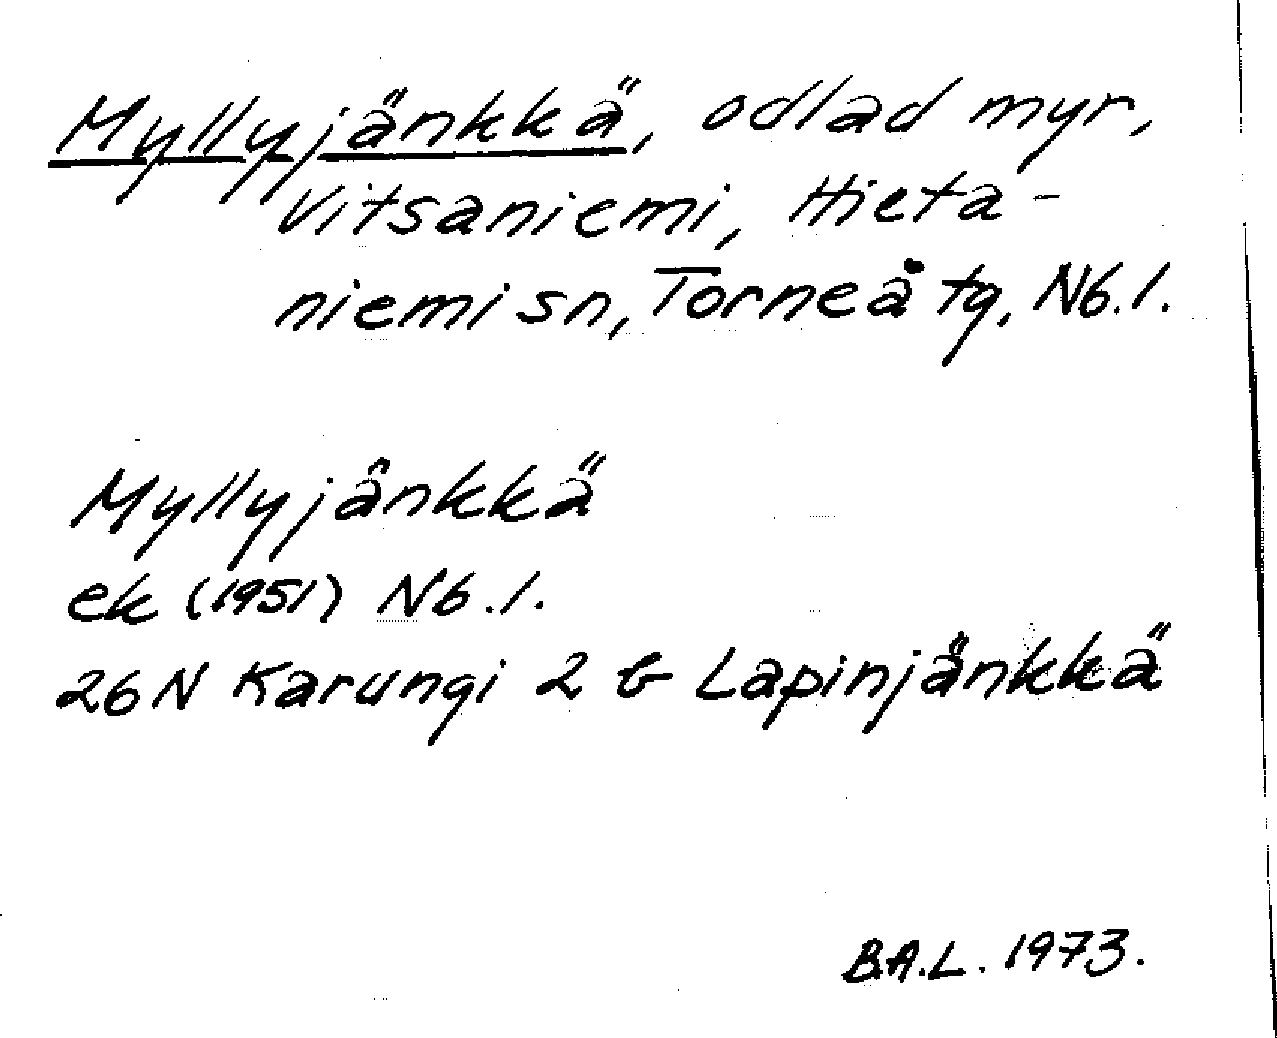 Myllyjänkkä, odlad myr,
Vitsaniemi, Hieta-
niemi sn, Torneå tg, Nb.l.
Myllyjänkkä
ek (1951) Nb.l.
26N Karungi 2 b Lapinjänkkä
B.A.L. 1973.